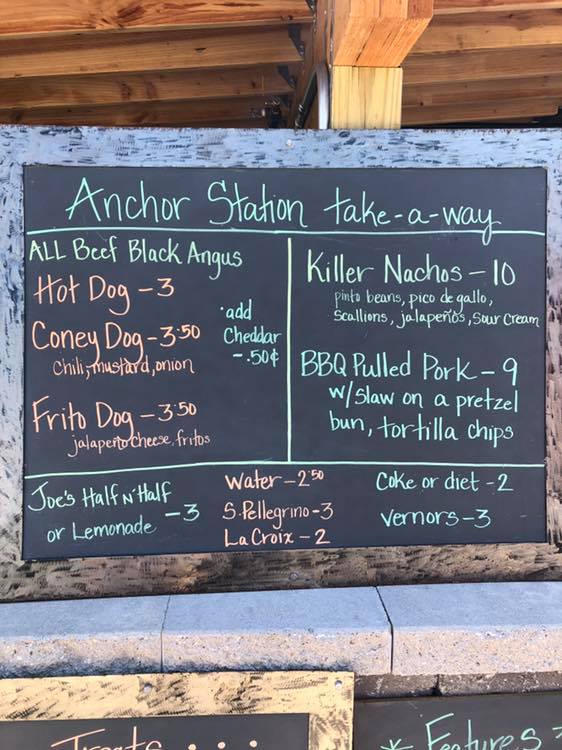 Anchor Station take-a-way
ALL Beef Black Angus
Hot Dog - 3
Coney Dog - 3.50
chili, mustard, onion
•add
Cheddar
- .50¢
Frito Dog - 3.50
jalapeño cheese, fritos
Killer Nachos - 10
pinto beans, pico de gallo,
scallions, jalapeños, sour cream
BBQ Pulled Pork - 9
w/slaw on a pretzel
bun, tortilla chips
Joe's Half N' Half
or Lemonade - 3
Water - 2.50
S. Pellegrino - 3
La Croix - 2
Coke or diet - 2
Vernors - 3
Treats . . .
* Features